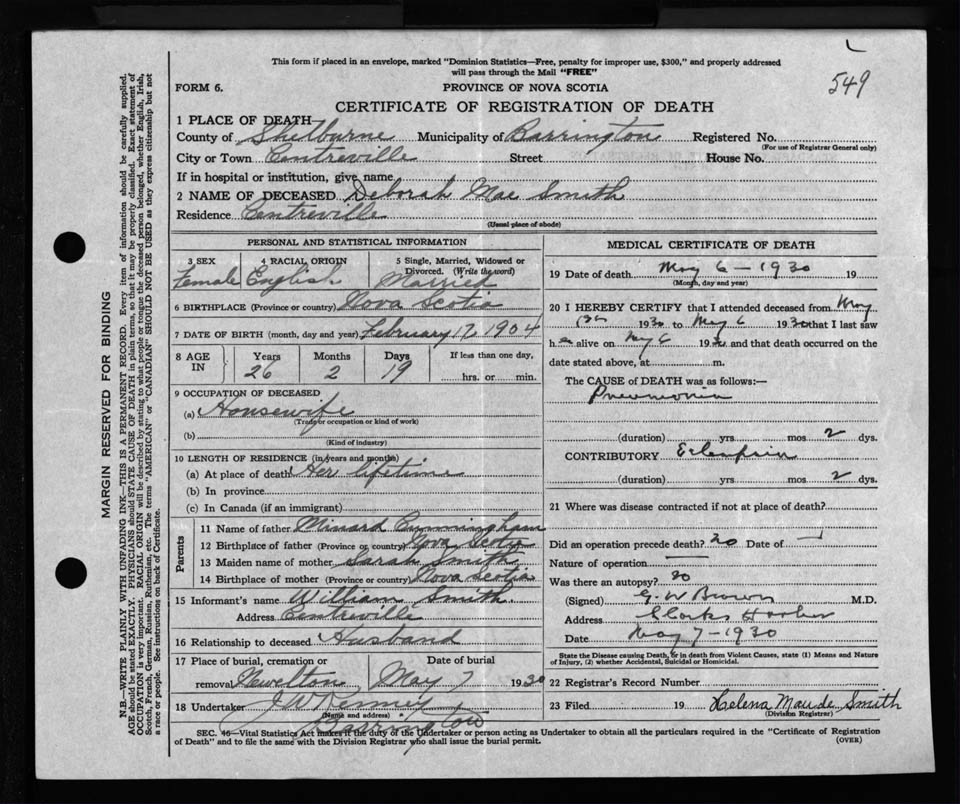 This form if placed in an envelope, marked "Dominion Statistics—Free, penalty for improper use, $300," and properly addressed
will pass through the Mail "FREE"
549
FORM 6.
PROVINCE OF NOVA SCOTIA
CERTIFICATE OF REGISTRATION OF DEATH
1 PLACE OF DEATH
County of Shelburne Municipality of Barrington Registered No.
(For use of Registrar General only)
City or Town Centreville Street House No.
If in hospital or institution, give name
2 NAME OF DECEASED Deborah Mae Smith
Residence Centreville
(Usual place of abode)
PERSONAL AND STATISTICAL INFORMATION
3 SEX 4 RACIAL ORIGIN 5 Single, Married, Widowed or
Divorced. (Write the word)
Female English Married
6 BIRTHPLACE (Province or country) Nova Scotia
7 DATE OF BIRTH (month, day and year) February 17 1904
8 AGE IN Years Months Days If less than one day,
26 2 19 hrs. or min.
9 OCCUPATION OF DECEASED
(a) Housewife
(Trade or occupation or kind of work)
(b)
(Kind of industry)
10 LENGTH OF RESIDENCE (in years and months)
(a) At place of death Her lifetime
(b) In province
(c) In Canada (if an immigrant)
Parents
11 Name of father Minard Cunningham
12 Birthplace of father (Province or country) Nova Scotia
13 Maiden name of mother Sarah Smith
14 Birthplace of mother (Province or country) Nova Scotia
15 Informant's name William Smith
Address Centreville
16 Relationship to deceased Husband
17 Place of burial, cremation or Date of burial
removal Newelton May 7 1930
18 Undertaker J W Kenney
(Name and address)
Barrington
MEDICAL CERTIFICATE OF DEATH
19 Date of death May 6 - 1930 19
(Month, day and year)
20 I HEREBY CERTIFY that I attended deceased from May
1930 to May 6 1930 that I last saw
h er alive on May 6 1930 and that death occurred on the
date stated above, at m.
The CAUSE of DEATH was as follows:—
Pneumonia
(duration) yrs. mos 2 dys.
CONTRIBUTORY
(duration) yrs. mos 2 dys.
21 Where was disease contracted if not at place of death?
Did an operation precede death? no Date of
Nature of operation
Was there an autopsy? no
(Signed) G. W Brown M.D.
Address Clarks Harbor
Date May 7 - 1930
State the Disease causing Death, or in death from Violent Causes, state (1) Means and Nature
of Injury, (2) whether Accidental, Suicidal or Homicidal.
22 Registrar's Record Number
23 Filed 19 Helena Maude Smith
(Division Registrar)
SEC. 46—Vital Statistics Act makes it the duty of the Undertaker or person acting as Undertaker to obtain all the particulars required in the "Certificate of Registration
of Death" and to file the same with the Division Registrar who shall issue the burial permit.
(OVER)
MARGIN RESERVED FOR BINDING
N.B.—WRITE PLAINLY WITH UNFADING INK—THIS IS A PERMANENT RECORD. Every item of information should be carefully supplied.
AGE should be stated EXACTLY. PHYSICIANS should STATE CAUSE OF DEATH in plain terms, so that it may be properly classified. Exact statement of
OCCUPATION is very important. RACIAL ORIGIN will be described by stating to what people or tongue the deceased person belonged, whether English, Irish,
Scotch, French, German, Russian, Ruthenian, etc. The terms "AMERICAN" or "CANADIAN" SHOULD NOT BE USED as they express citizenship but not
a race or people. See instructions on back of Certificate.